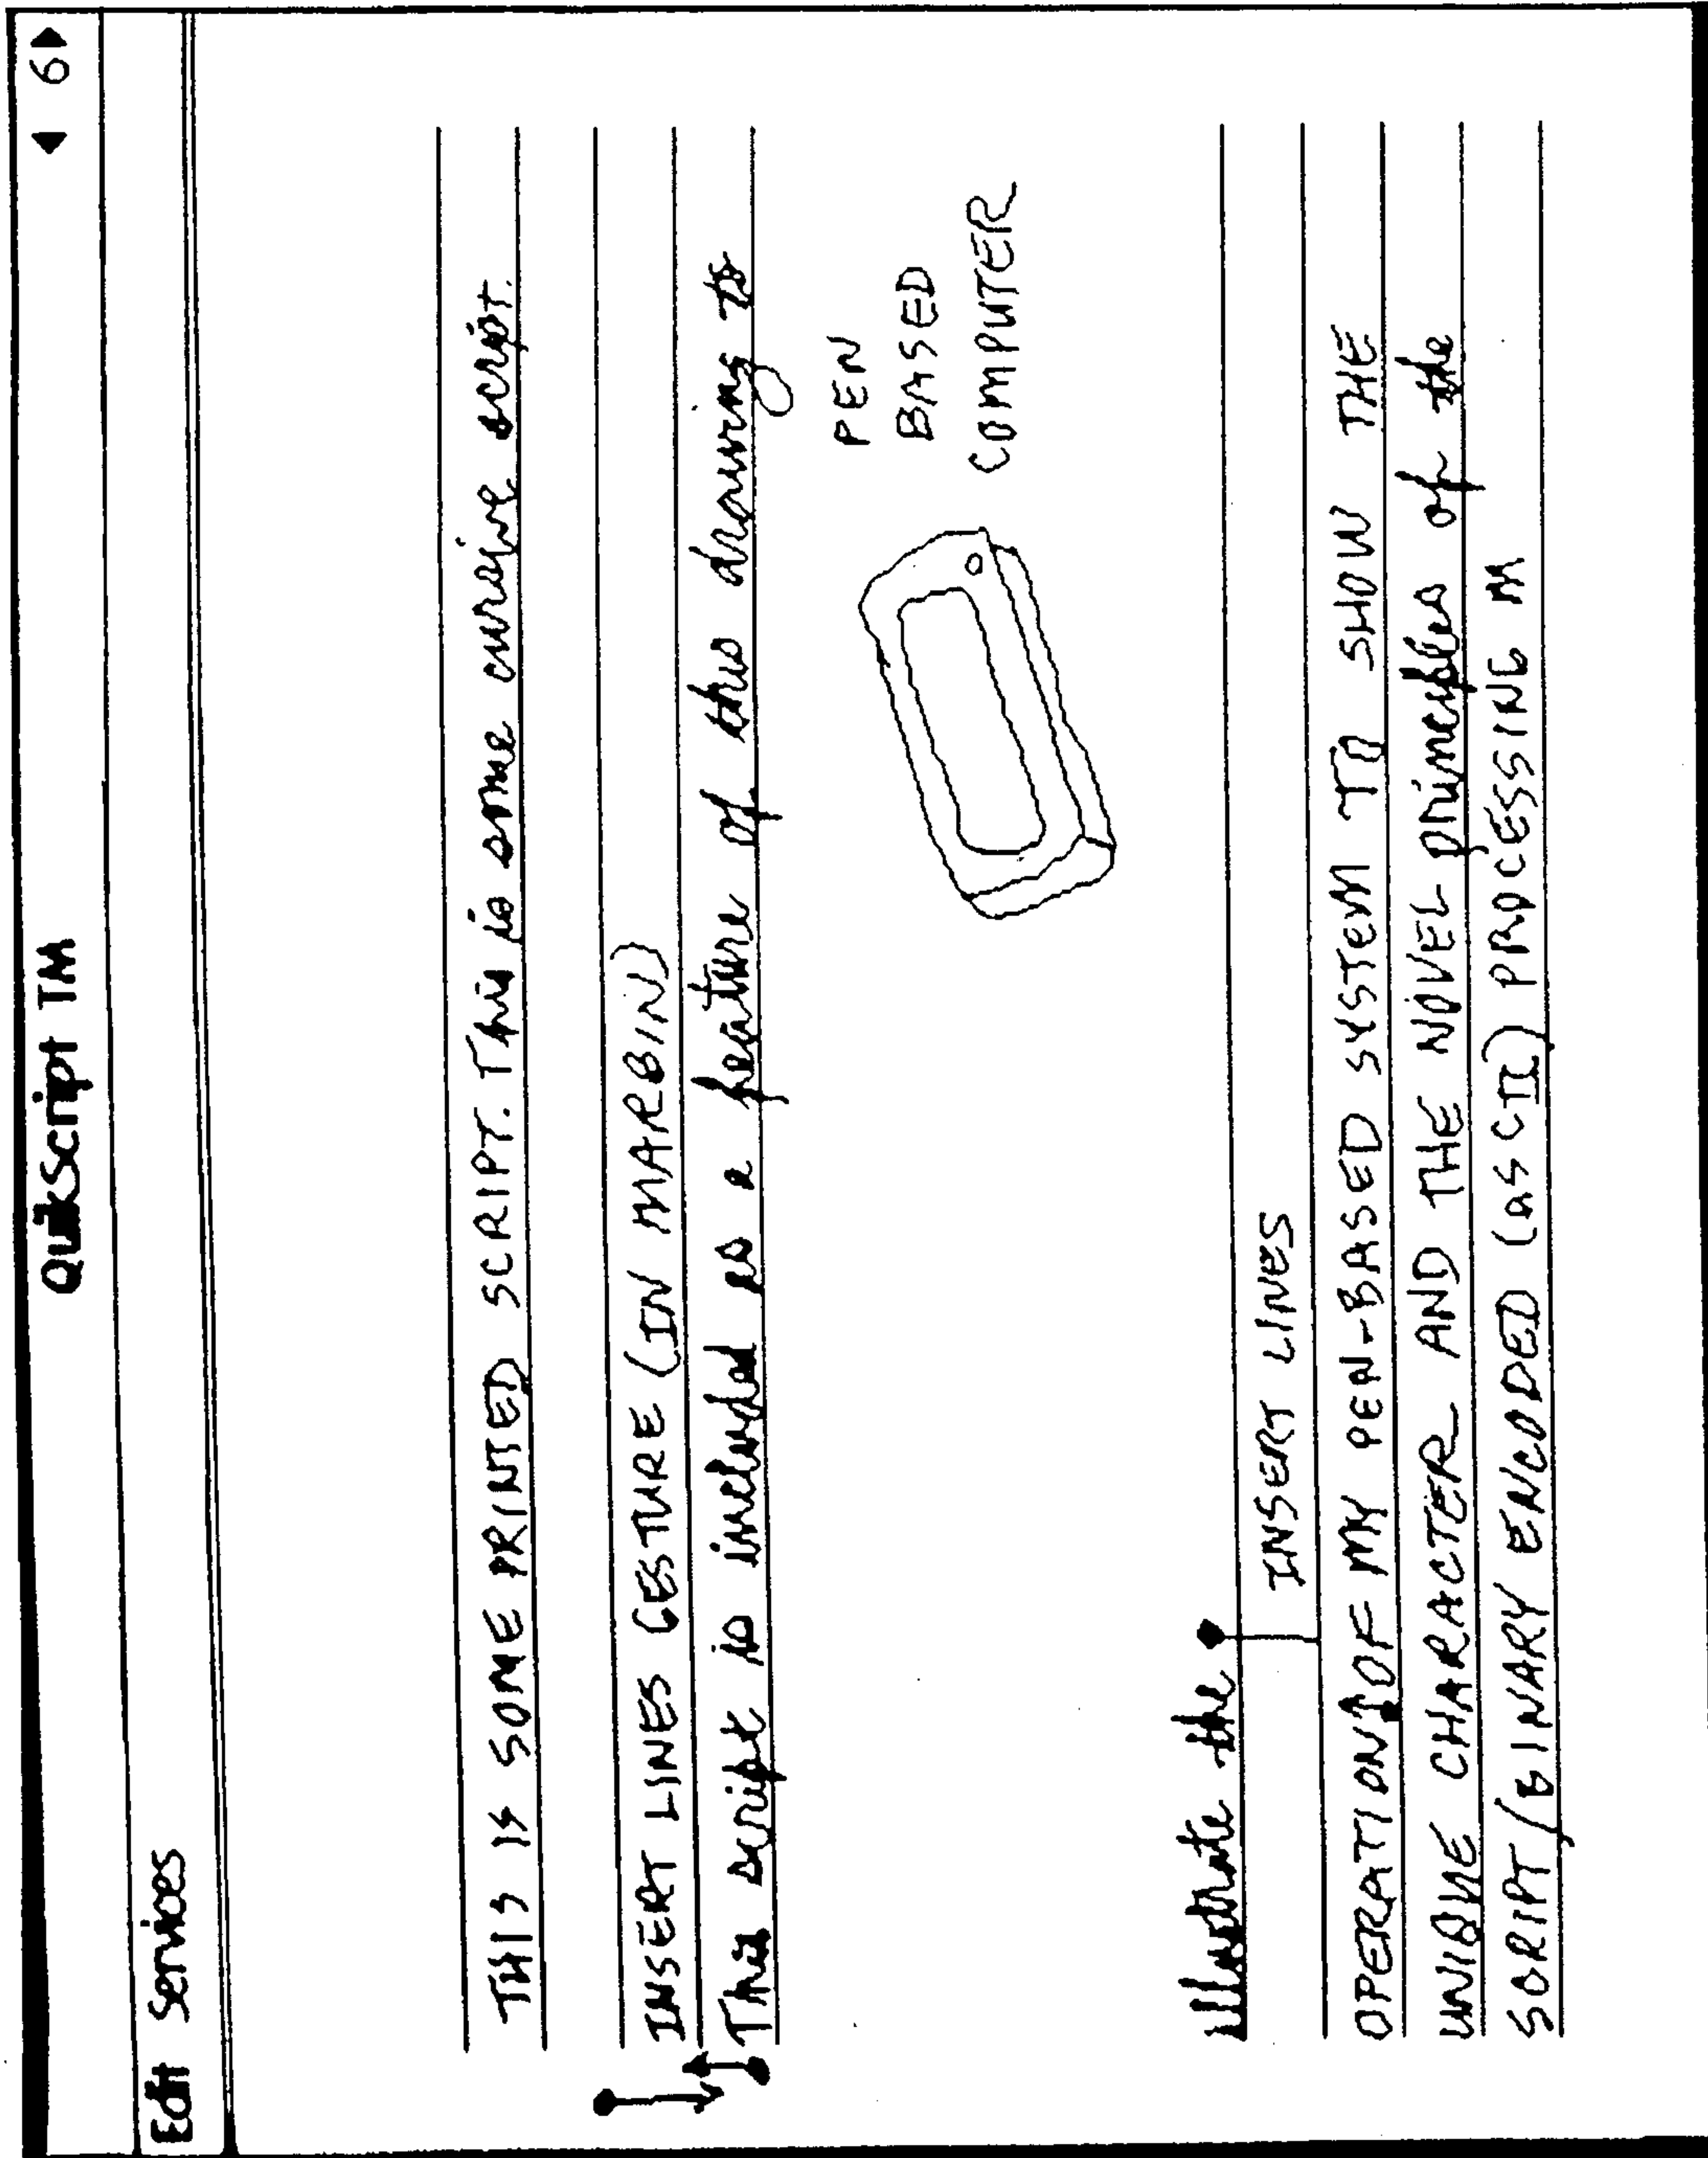 QuikScript TM ◀ 6 ▶
Edit Services
THIS IS SOME PRINTED SCRIPT. This is some cursive script.
INSERT LINES GESTURE (IN MARGIN)
This script is included as a feature of this drawing to
PEN
BASED
COMPUTER
illustrate the
INSERT LINES
OPERATION OF MY PEN-BASED SYSTEM TO SHOW THE
UNIQUE CHARACTER AND THE NOVEL principles of the
SCRIPT/BINARY ENCODED (ASCII) PROCESSING M